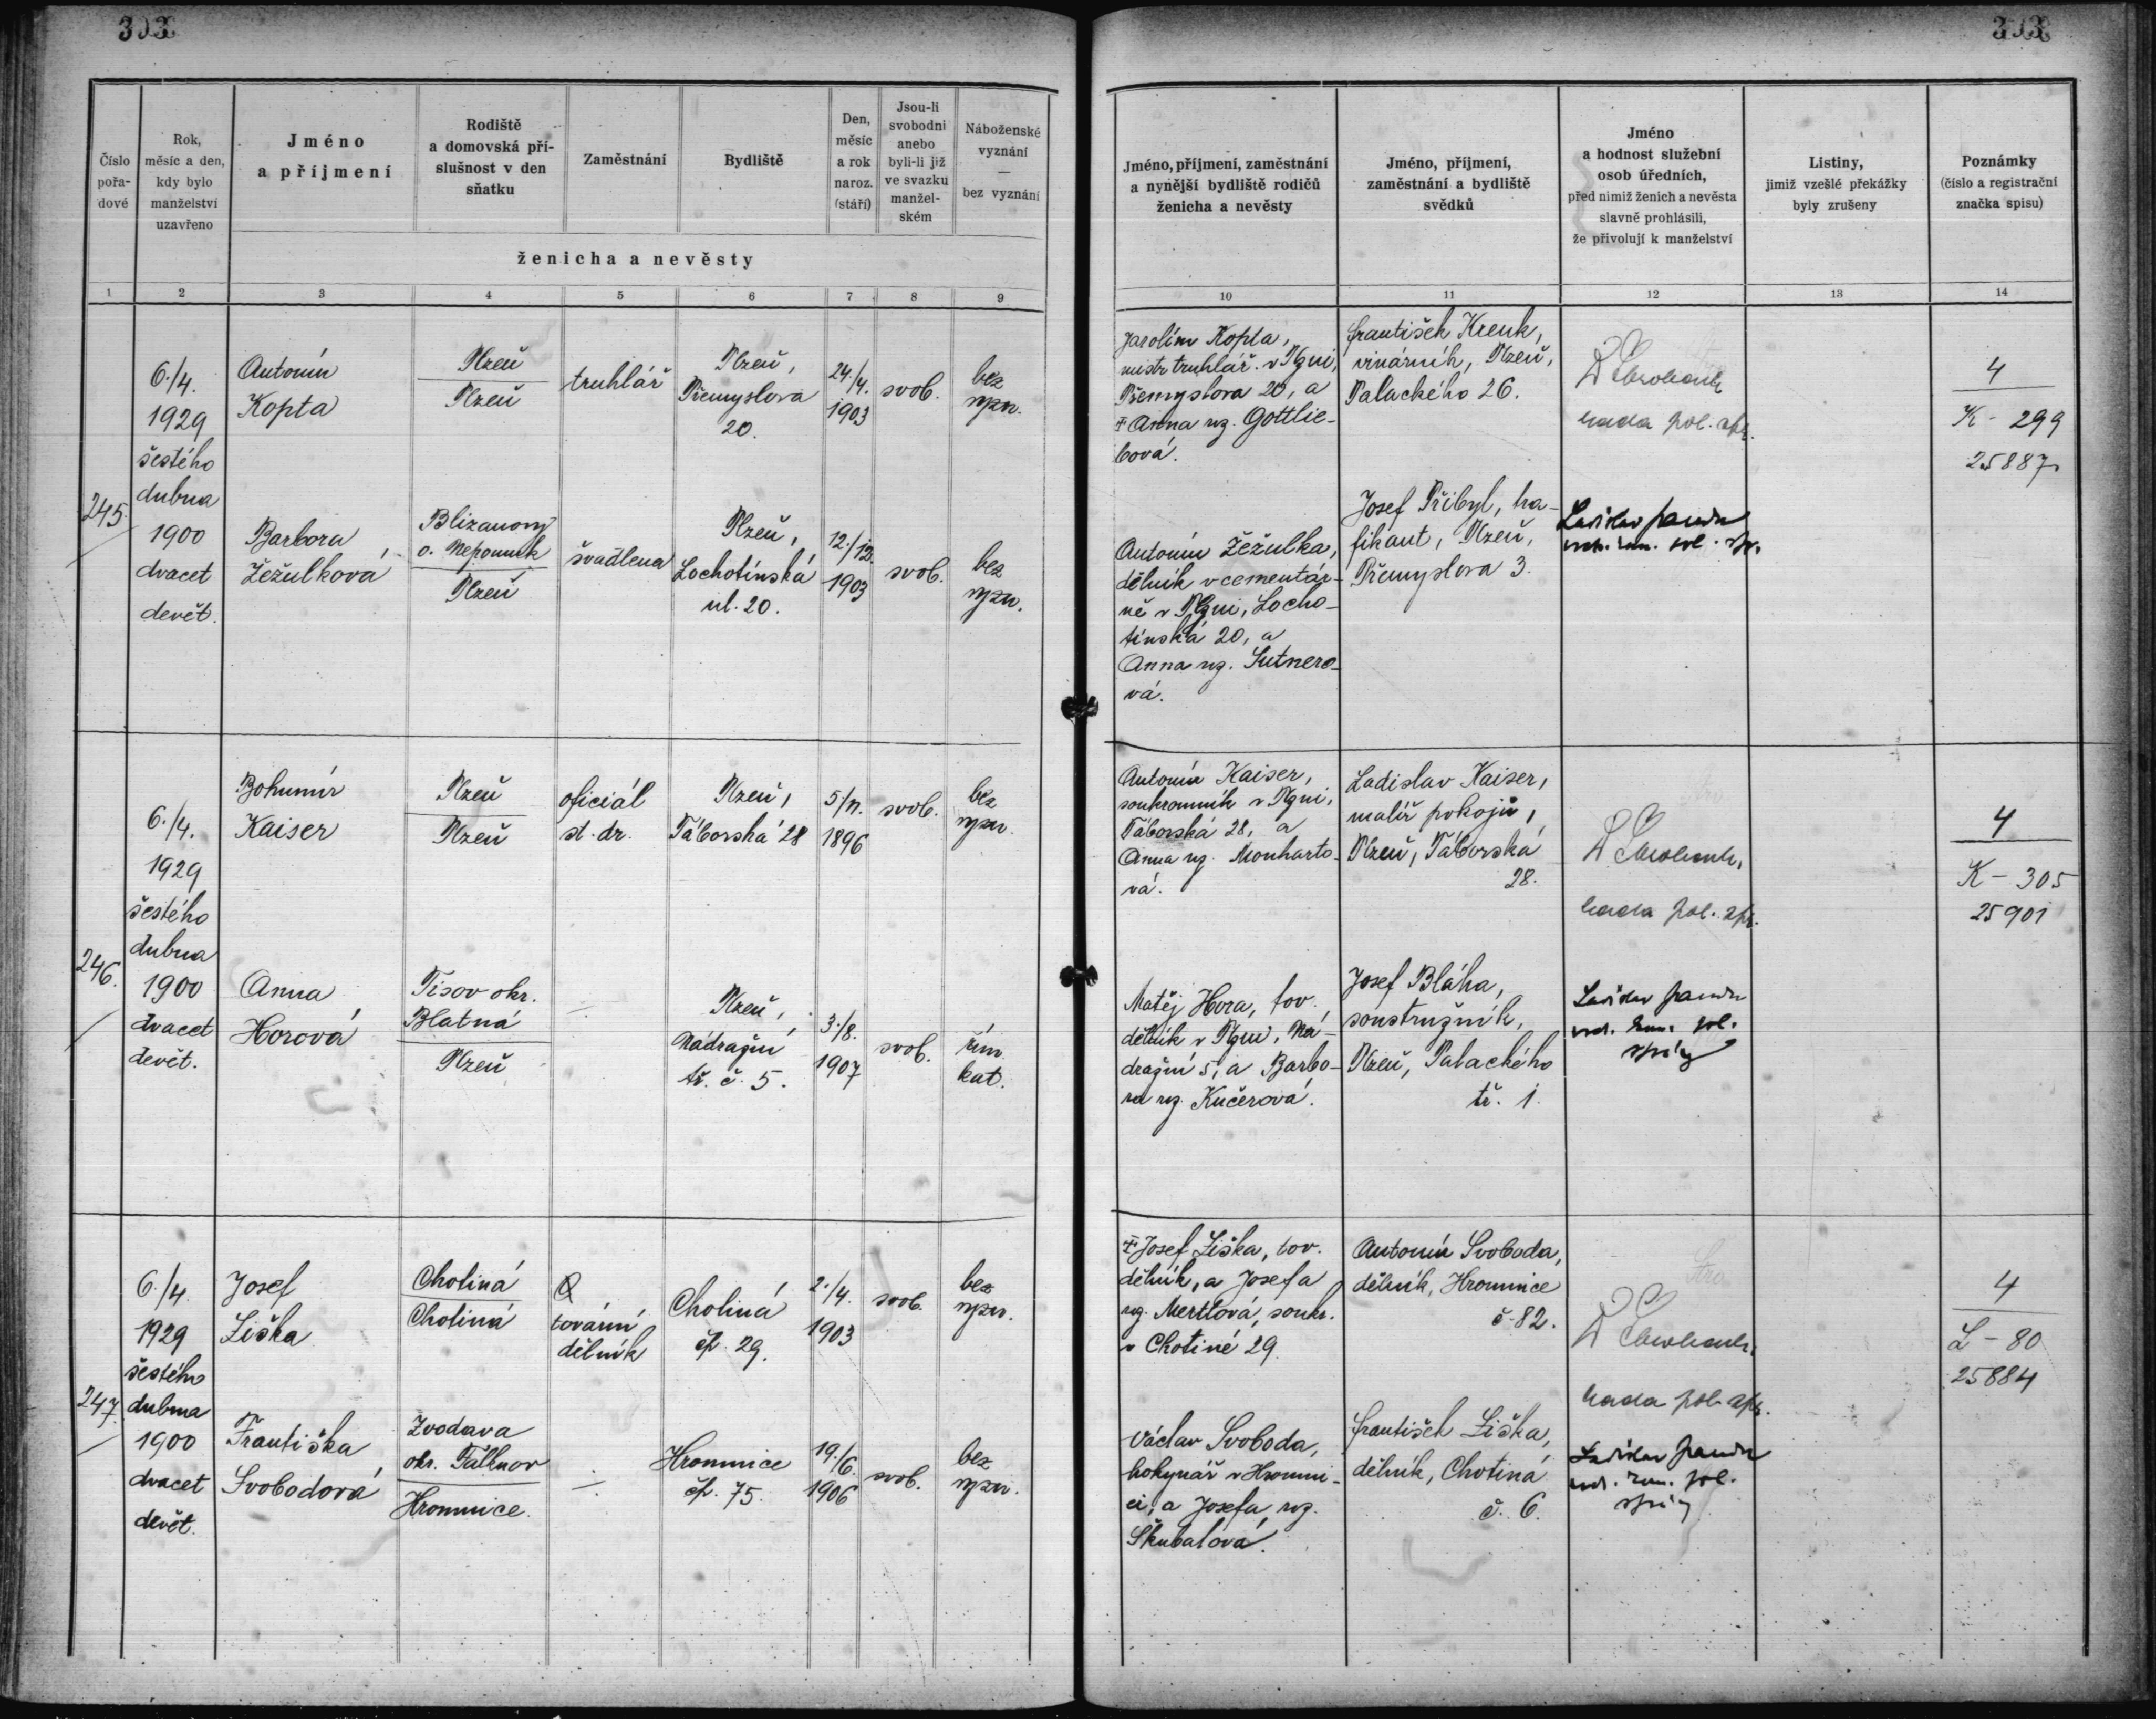 303
303
Číslo pořa-dové
Rok, měsíc a den, kdy bylo manželství uzavřeno
Jméno a příjmení
Rodiště a domovská pří-slušnost v den sňatku
Zaměstnání
Bydliště
Den, měsíc a rok naroz. (stáří)
Jsou-li svobodni anebo byli-li již ve svazku manžel-ském
Náboženské vyznání — bez vyznání
ženicha a nevěsty
Jméno, příjmení, zaměstnání a nynější bydliště rodičů ženicha a nevěsty
Jméno, příjmení, zaměstnání a bydliště svědků
Jméno a hodnost služební osob úředních, před nimiž ženich a nevěsta slavně prohlásili, že přivolují k manželství
Listiny, jimiž vzešlé překážky byly zrušeny
Poznámky (číslo a registrační značka spisu)
1 2 3 4 5 6 7 8 9 10 11 12 13 14
245.
6./4.
1929
šestého
dubna
1900
dvacet
devět.
Antonín
Kopta
Plzeň
Plzeň
truhlář
Plzeň,
Přemyslova
20.
24./4.
1903
svob.
bez
vyzn.
Barbora
Žežulková
o. Nepomuk
Plzeň
švadlena
Plzeň,
Lochotínská
ul. 20.
12./12.
1903
svob.
bez
vyzn.
Jarolím Kopta,
mistr truhlář. v Plzni,
Přemyslova 20, a
† Anna roz. Gottlie-
bová.
Antonín Žežulka,
dělník v cementár-
ně v Plzni, Locho-
tínská 20, a
Anna roz. Sutnero-
vá.
František Krenk,
vinárník, Plzeň,
Palackého 26.
Josef Přibyl, tra-
fikant, Plzeň,
Přemyslova 3.
rada pol. spr.
Ladislav
4
K - 299
25887
246.
6./4.
1929
šestého
dubna
1900
dvacet
devět.
Bohumír
Kaiser
Plzeň
Plzeň
oficiál
st. dr.
Plzeň,
Táborská 28
1896
svob.
bez
vyzn.
Anna
Horová
Tisov okr.
Blatná
Plzeň
Plzeň,
Nádražní
tř. č. 5.
3./8.
1907
svob.
řím.
kat.
Antonín Kaiser,
soukromník v Plzni,
Táborská 28, a
Anna roz. Monharto-
vá.
Matěj Hora, tov.
dělník v Plzni, Ná-
dražní 5, a Barbo-
ra roz. Kučerová.
Ladislav Kaiser,
malíř pokojů,
Plzeň, Táborská
28.
Josef Bláha,
soustružník,
Plzeň, Palackého
tř. 1.
rada pol. spr.
Ladislav
4
K - 305
25901
247.
6./4.
1929
šestého
dubna
1900
dvacet
devět.
Josef
Liška
Chotiná
Chotiná
tovární
dělník
Chotiná
čp. 29.
2./4.
1903
svob.
bez
vyzn.
Františka
Svobodová
Zvodava
okr. Falknov
Hromnice.
Hromnice
čp. 75.
19./6.
1906
svob.
bez
vyzn.
† Josef Liška, tov.
dělník, a Josefa
roz. Mertlová, soukr.
v Chotiné 29.
Václav Svoboda,
hokynář v Hromni-
ci, a Josefa roz.
Škubalová.
Antonín Svoboda,
dělník, Hromnice
č. 82.
František Liška,
dělník, Chotiná
č. 6.
rada pol. spr.
Ladislav
4
L - 80
25884